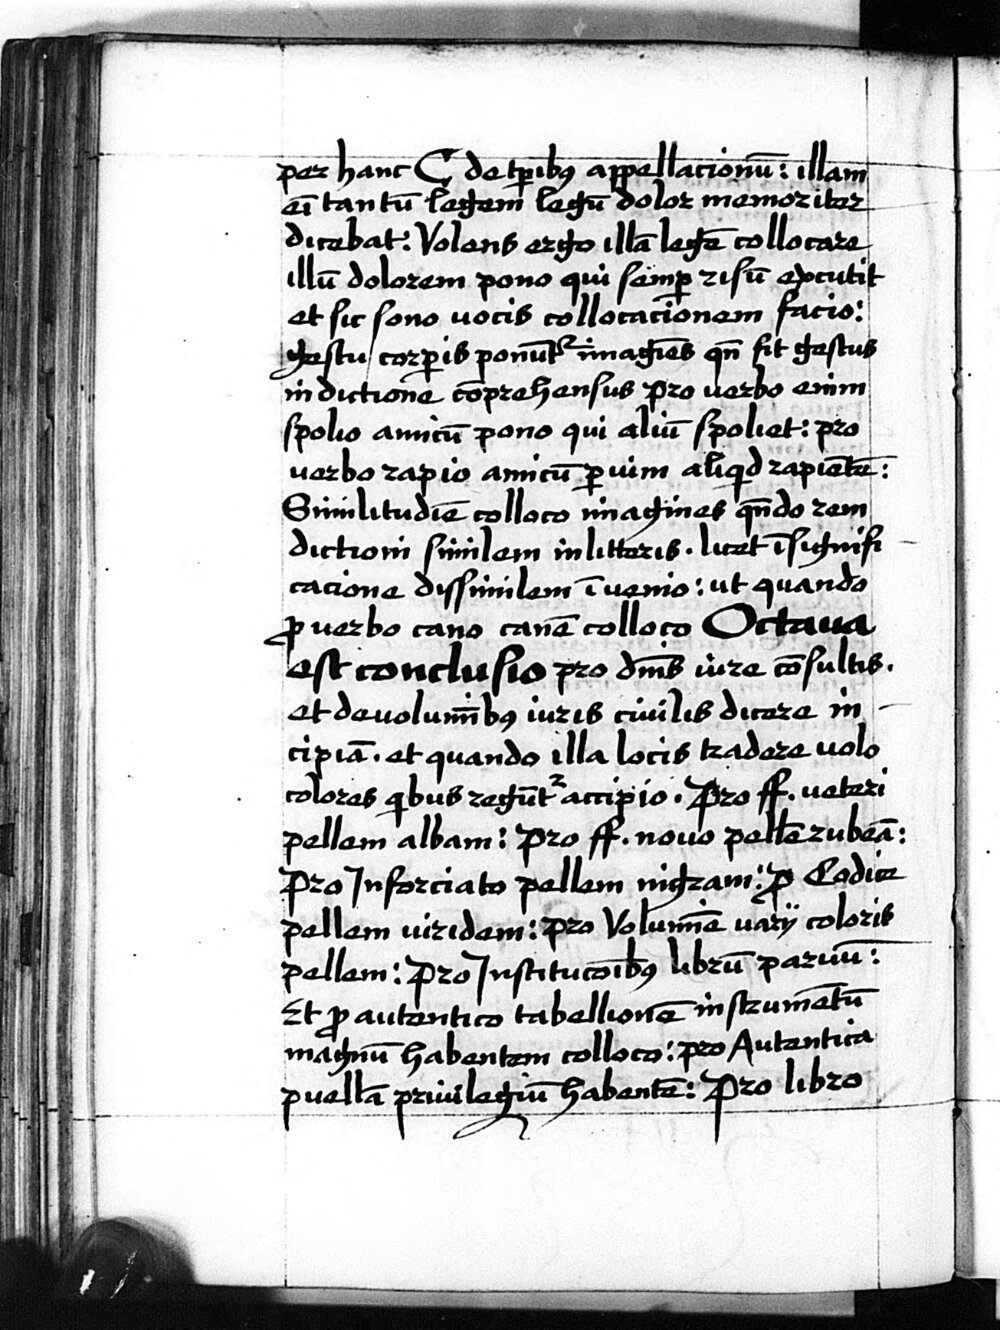 per hanc C de tꝑibꝯ appellacionū: illam
eī tantū legem legū dolor memoriter
dicebat: Volens ergo illā legē collocare
illū dolorem pono qui semꝑ risū excutit
et sic sono vocis collocacionem facio:
gestu corꝑis ponūtr imagīes qn̄ fit gestus
in dictione cōprehensus pro verbo enim
spolio amicū pono qui aliū spoliet: pro
verbo rapio amicū ꝑ vim aliqd rapiētē:
Similitudīe colloco imagines qn̄do rem
dictioni similem in litteris. licet ī signifi
cacione dyssimilem īvenio: ut quando
ꝓ verbo cano canē colloco Octava
est conclusio pro dm̄s iure cōsultis.
et de volumībꝯ iuris civilis dicere in
cipiā. et quando illa locis tradere volo
colores qibus regūtr accipio. Pro ff. veteri
pellem albam: Pro ff. novo pellē rubeā:
Pro Inforciato pellem nigram: ꝓ Codice
pellem viridem: pro Volumīe varij coloris
pellem: Pro Institucōibꝯ librū parvū:
Et ꝓ autentico tabellionē instrumētū
magnū habentem colloco: pro Autentica
puellā privilegiū habentē: Pro libro